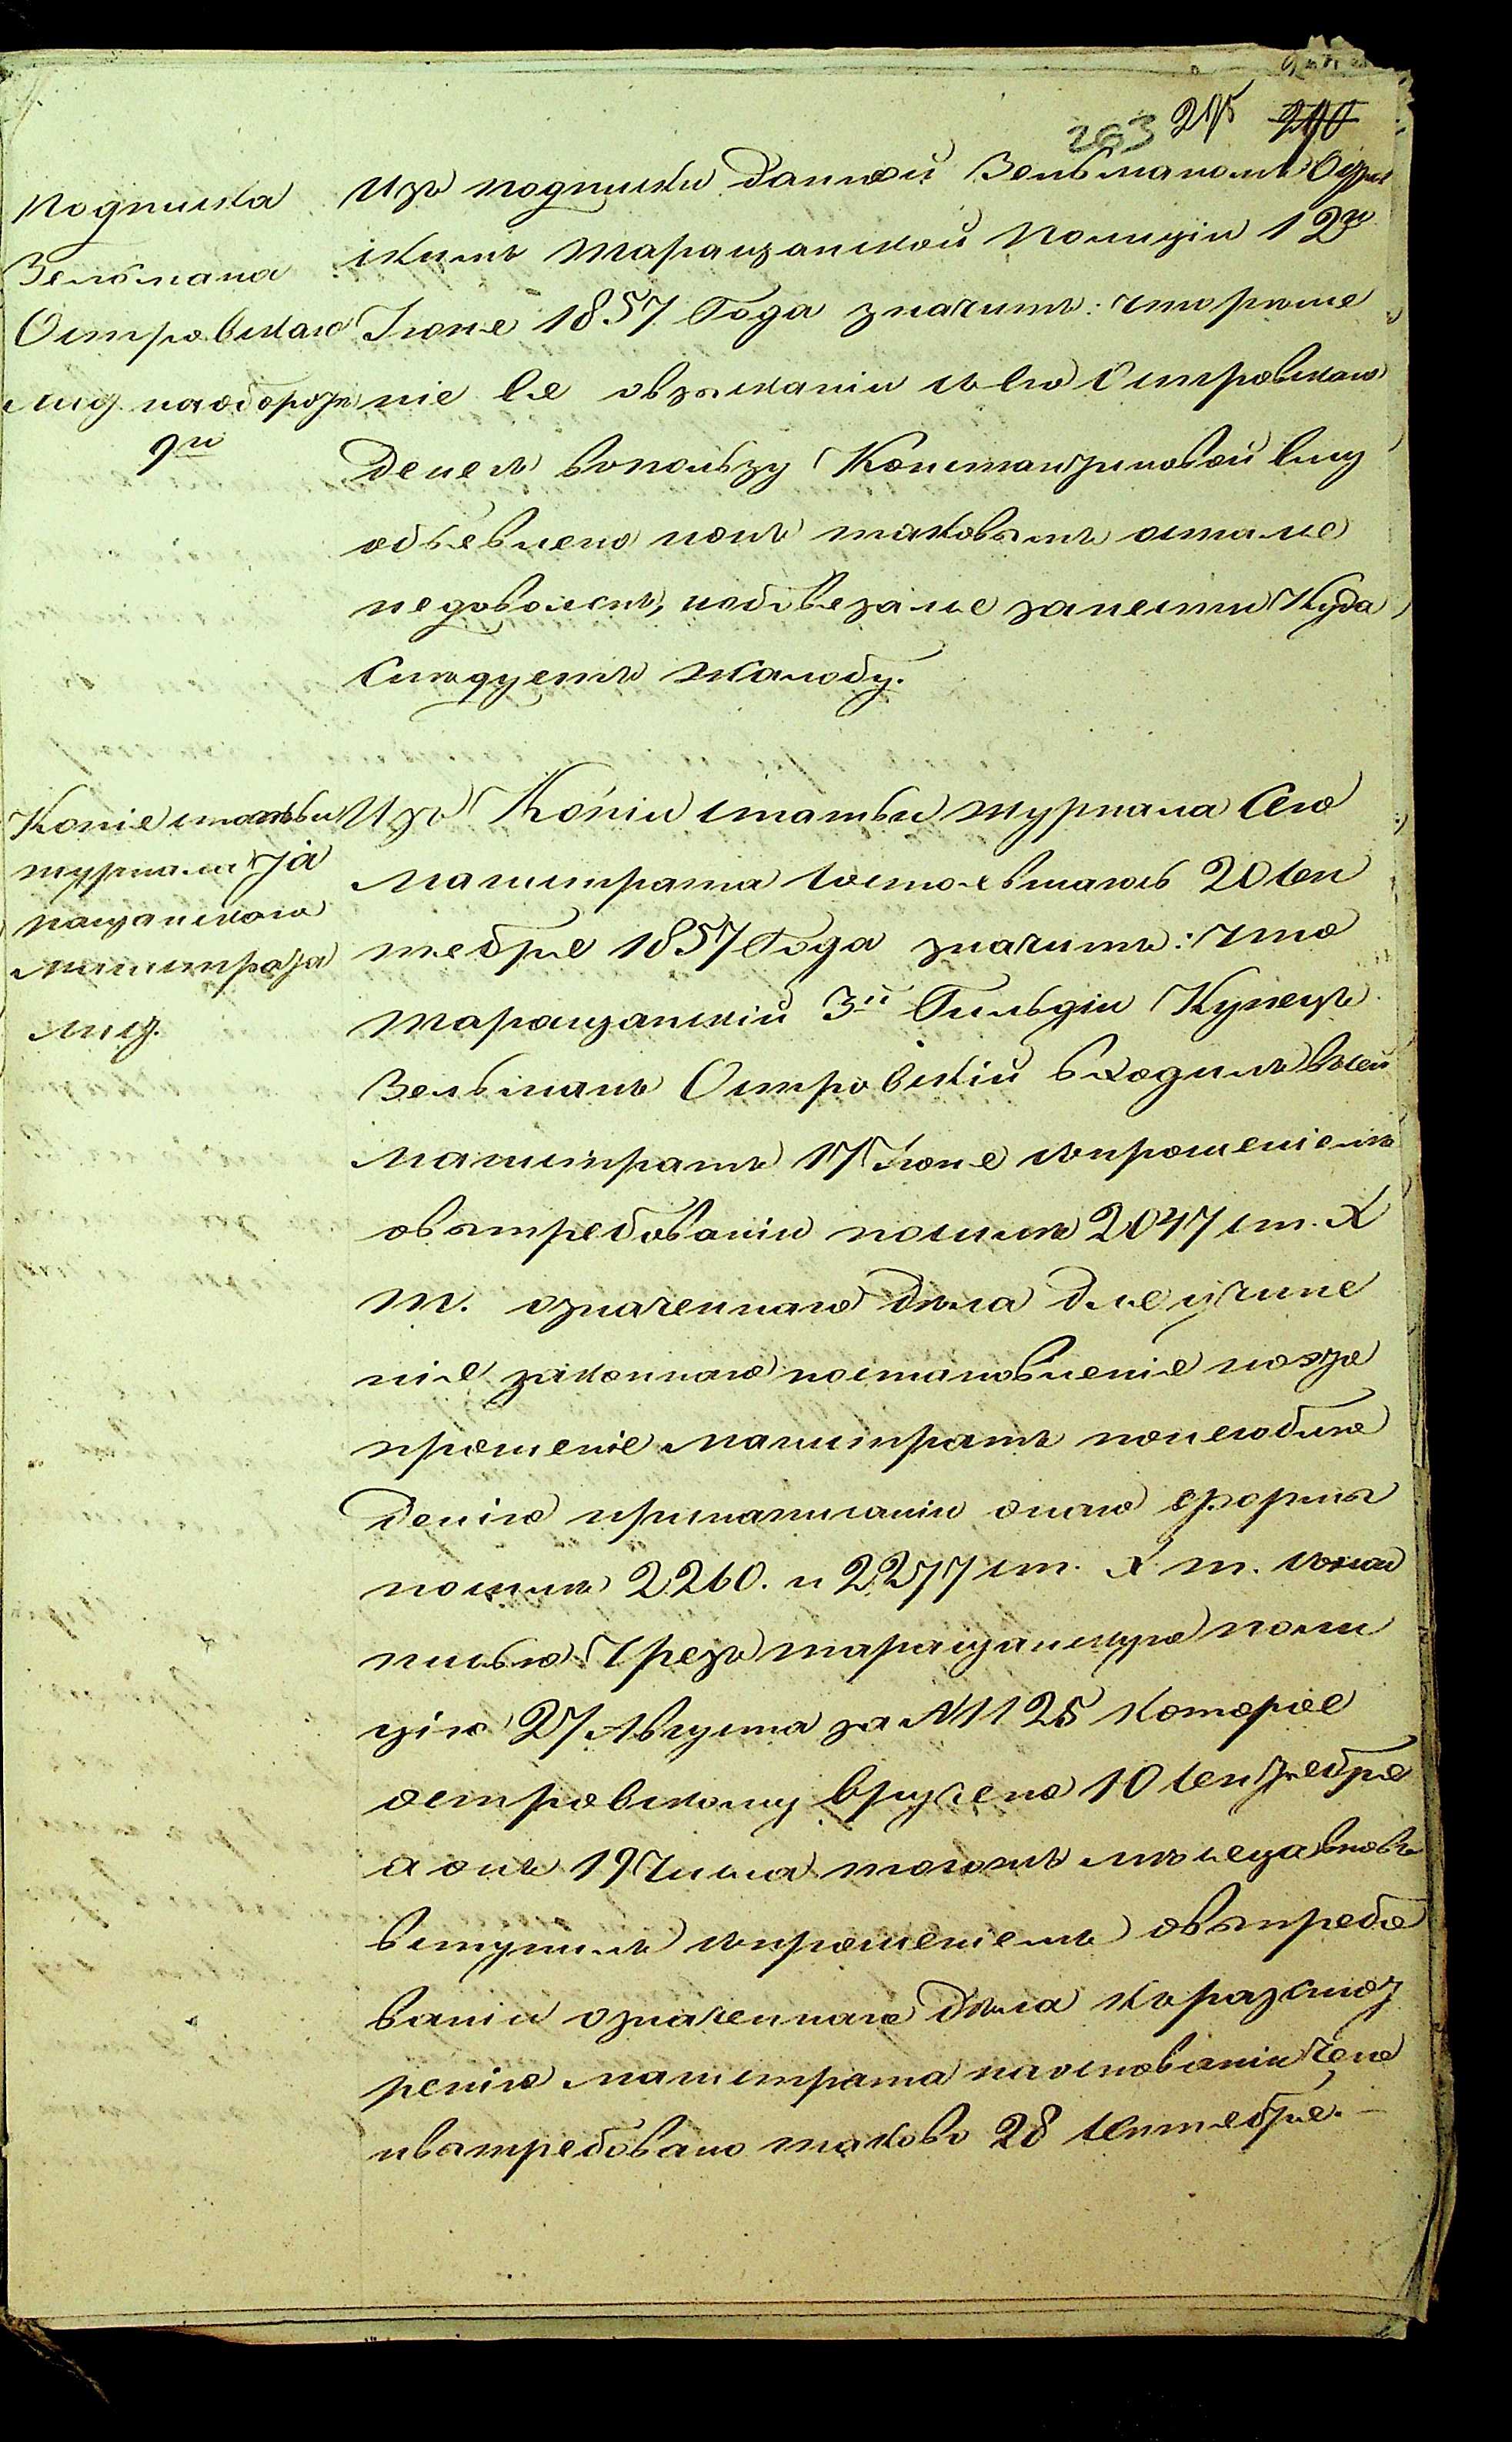 203 215 210
Подписка
Зельмана
Островскаго
лид. наоборотѣ
9ть
Изъ подписки данной Зельманомъ Остров
скимъ таращанской Полиціи 12го
Іюне 1857 Года значитъ: что реше
ніе
о взысканіи съ его Островскаго
Денегъ вопользу Константиновой ему
объевлено ионъ таковымъ остался
недоволенъ, иобвезалсе занести Куда
Слѣдуетъ жалобу.
Копіе статьи
журнала та
ращанскаго
магистрата
лид.
Изъ Копіи статьи журнала Сего
магистрата состоевшагось 20 Сен
тебрье 1857 Года значитъ: что
таращанскій 3й Гильдіи Купецъ
Зельманъ Островскій входилъ всей
магистратъ 17 Іюне спрошеніемъ
овытребованіи посилѣ 2047 ст. X
т. означеннаго дѣла Дле учине
ніе законнаго постановленіе
прошеніе магистратъ
Деніе принаписаніи онаго формы
посилѣ 2260. и 2277 ст. X т. сънад
писью Чрезъ таращанскую поли
цію 27 Августа за №1125 Которое
островскому вручено 10 Сентебре
а онъ 19 Числа тогожъ мѣсеца вновь
вступилъ спрошеніемъ овытребо
ваніи означеннаго дѣла къ разсмот
ренію магистрата наоснованіи чего
ивытребовано таково 28 Сентебре.-